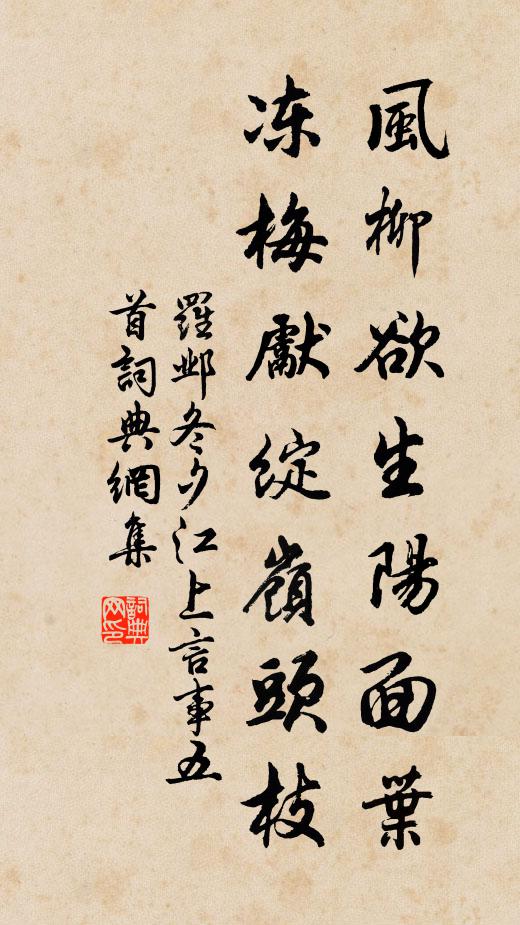 風柳欲生陽面葉
凍梅獻綻嶺頭枝
羅鄴冬夕江上言事五
首詞典網集
詞典
网印